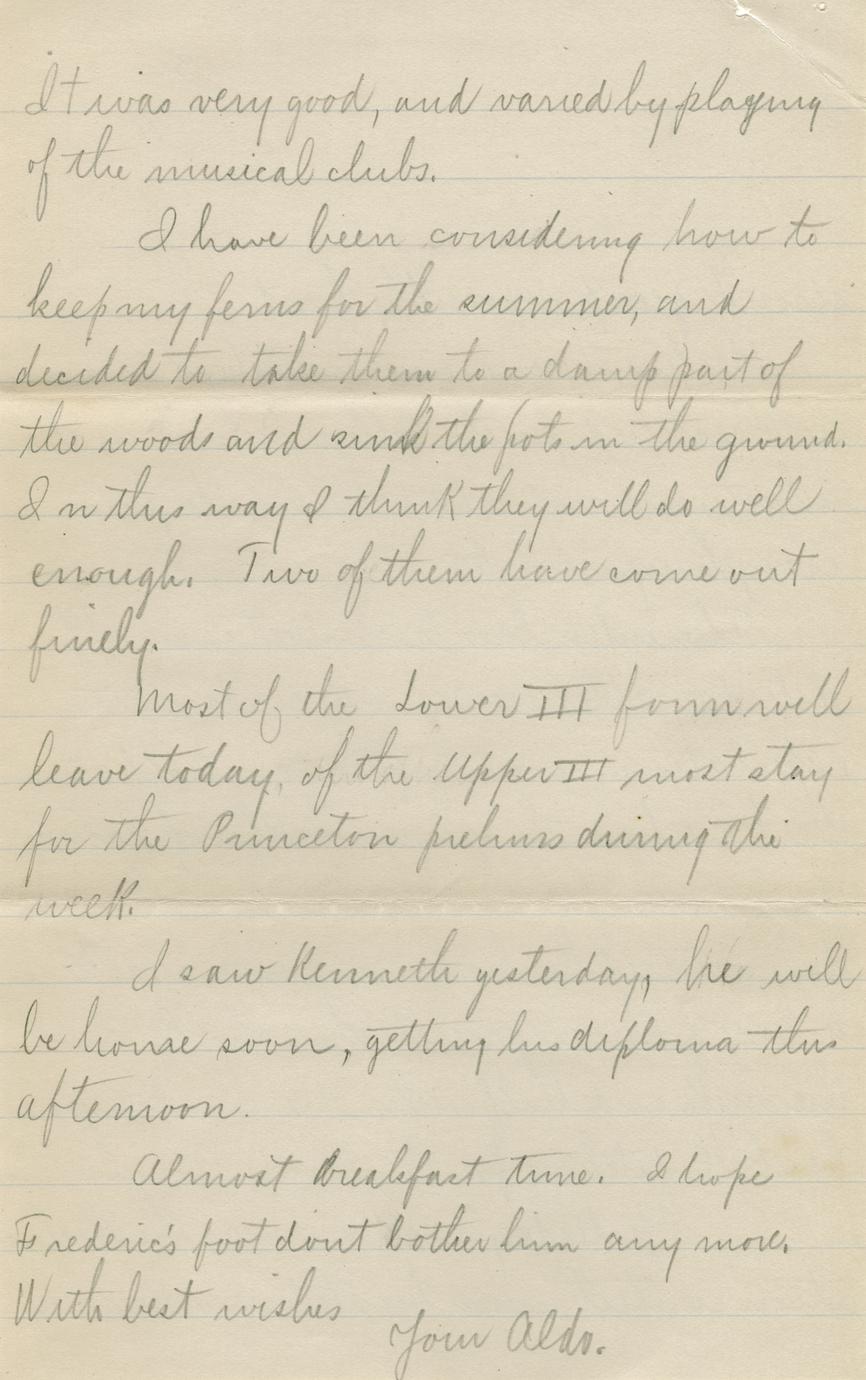 It was very good, and varied by playing
of the musical clubs.
I have been considering how to
keep my ferns for the summer, and
decided to take them to a damp part of
the woods and sink the pots in the ground.
In this way I think they will do well
enough. Two of them have come out
finely.
Most of the Lower III form will
leave today, of the Upper III most stay
for the Princeton prelims during the
week.
I saw Kenneth yesterday, he will
be home soon, getting his diploma this
afternoon.
Almost breakfast time. I hope
Frederic's foot dont bother him any more.
With best wishes
Your Aldo.